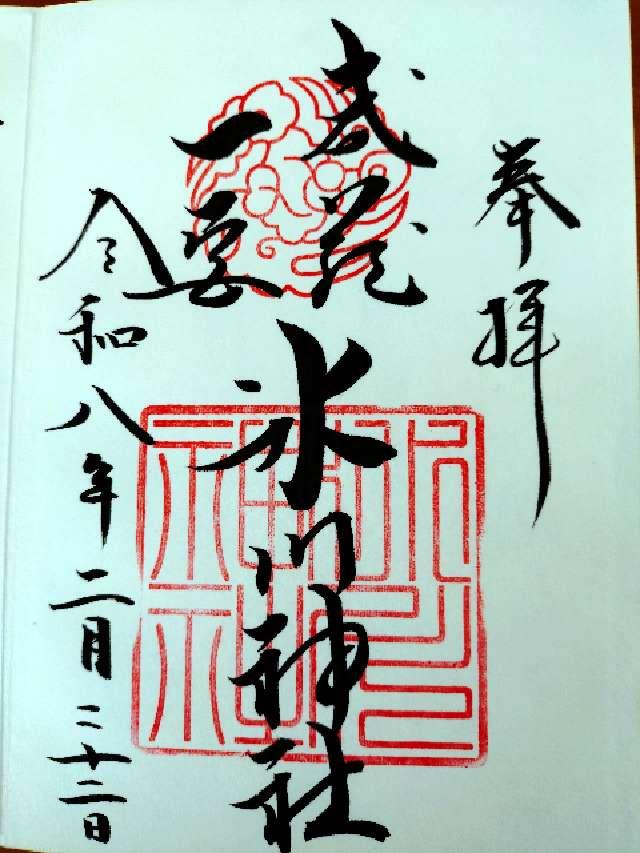 奉拝
武蔵
一宮
氷川神社
令和八年二月二十二日
氷川
神社